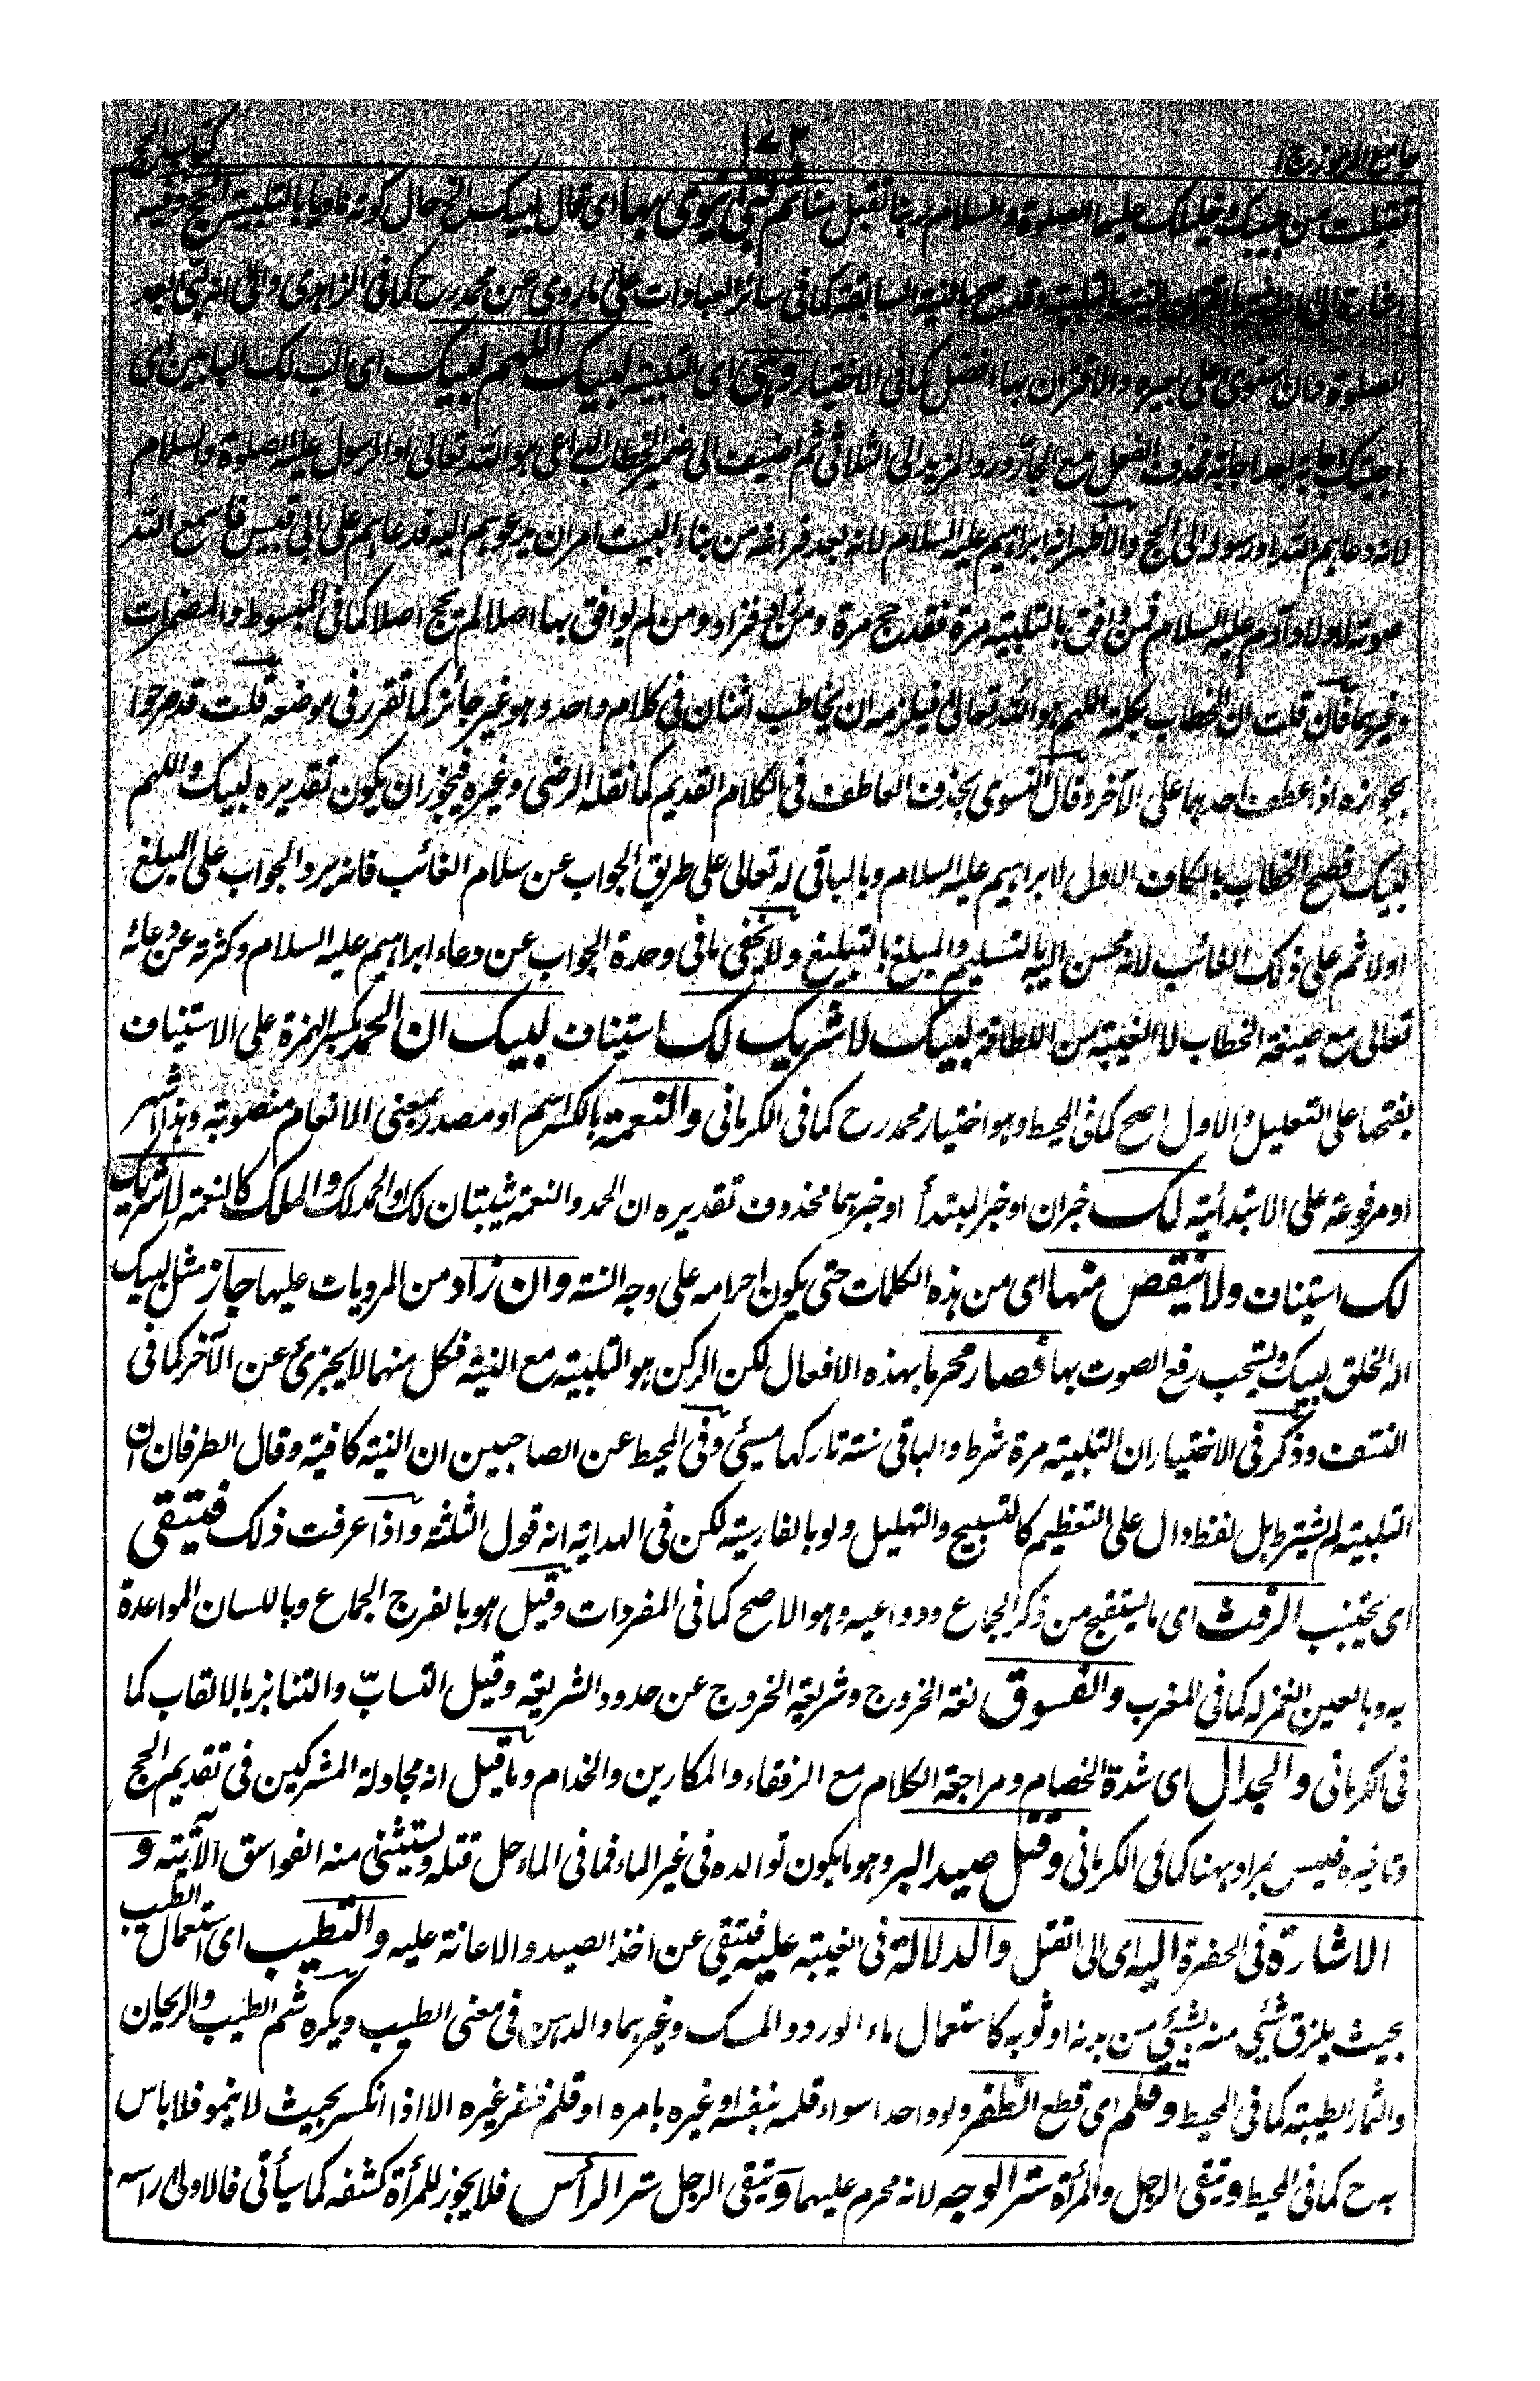 جامع الرموز ج ١ ١٧٢ كتاب الحج
تقبلت من حبيبك وخليلك عليهما الصلوة والسلام ربنا تقبل منا ثم لبى ينوي بها اى قال لبيك الخ حال كونه ناويا بالتلبية الحج وفيه
اشارة الى انه بالتلبية وقد صح بالنية السابقة كما فى سائر العبادات على ما روى عن محمد رح كما فى الزاهدى والى انه لبى بعد
الصلوة وان استوى على بعيره والاقتران بها افضل كما فى الاختيار وهى اى التلبية لبيك اللهم لبيك اى الب لك البابين اى
اجيبك اجابة بعد اجابة فحذف الفعل مع الجار ورد المزيد الى الثلاثى ثم اضيف الى ضمير الخطاب الداعى هو الله تعالى او الرسول عليه الصلوة والسلام
لانه دعاهم الله او رسوله الى الحج والاظهر انه ابراهيم عليه السلام لانه بعد فراغه من بناء البيت امر ان يدعوهم اليه فدعاهم على ابى قبيس فاسمع الله
صوته اولاد آدم عليه السلام فمن وافق بالتلبية مرة فقد حج مرة ومن زاد فزاد ومن لم يوافق بها اصلا لم يحج اصلا كما فى المبسوط والمضمرات
وغيرهما فان قلت ان الخطاب بكلمة اللهم هو الله تعالى فيلزمه ان يخاطب اثنان فى كلام واحد وهو غير جائز كما تقرر فى موضعه قلت قد صرحوا
بجوازه اذا عطف احدهما على الآخر وقال النسوى بحذف العاطف فى الكلام القديم كما نقله الرضى وغيره فيجوز ان يكون تقديره لبيك واللهم
لبيك فصح الخطاب بالكاف الاول لابراهيم عليه السلام وبالباقى له تعالى على طريق الجواب عن سلام الغائب فانه يرد الجواب على المبلغ
اولا ثم على ذلك الغائب لانه محسن اليه بالتسليم والمبلغ بالتبليغ ولا يخفى ما فى وحدة الجواب عن دعاء ابراهيم عليه السلام وكثرته عن دعائه
تعالى مع صيغة الخطاب لا الغيبة من اللطافة لبيك لا شريك لك استيناف لبيك ان الحمد بكسر الهمزة على الاستيناف
بفتحها على التعليل والاول اصح كما فى المحيط وهو اختيار محمد رح كما فى الكرمانى والنعمة بالكسر اسم او مصدر بمعنى الانعام منصوبة وهذا اشهر
او مرفوعة على الابتدائية لك خبر ان او خبر المبتدأ او خبرهما محذوف تقديره ان الحمد والنعمة ثبتتان لك او الحمد لك والملك كالنعمة لا شريك
لك استيناف ولا ينقص منها اى من هذه الكلمات حتى يكون احرامه على وجه السنة وان زاد من المرويات عليها جاز مثل لبيك
اله الخلق لبيك ويستحب رفع الصوت بها فصار محرما بهذه الافعال لكن الركن هو التلبية مع النية فكل منهما لا يجزئ عن الآخر كما فى
النتف وذكر فى الاختيار ان التلبية مرة شرط والباقى سنة تاركها مسيئ وفى المحيط عن الصاحبين ان النية كافية وقال الطرفان ان
التلبية لم يشترط بل لفظ دال على التعظيم كالتسبيح والتهليل ولو بالفارسية لكن فى الهداية انه قول الثلثة واذا عرفت ذلك فيتقى
اى يجتنب الرفث اى ما يستقبح من ذكر الجماع ودواعيه وهو الاصح كما فى المفردات وقيل هو بالفرج الجماع وباللسان المواعدة
به وبالعين الغمز له كما فى المغرب والفسوق لغة الخروج وشريعة الخروج عن حدود الشريعة وقيل التسابّ والتنابز بالالقاب كما
فى الكرمانى والجدال اى شدة الخصام ومراجعة الكلام مع الرفقاء والمكارين والخدام وما قيل انه مجادلة المشركين فى تقديم الحج
وتاخيره فليس بمراد ههنا كما فى الكرمانى وقتل صيد البر وهو ما يكون توالده فى غير الماء فما فى الماء حل قتله ويستثنى منه الفواسق الآتية و
الاشارة فى الحضرة اليه اى الى القتل والدلالة فى الغيبة عليه فيتقى عن اخذ الصيد والاعانة عليه والتطيب اى استعمال الطيب
بحيث يلزق شئ منه بشئ من بدنه او ثوبه كاستعمال ماء الورد والمسك وغيرهما والدهن فى معنى الطيب ويكره شم الطيب والريحان
والثمار الطيبة كما فى المحيط وقلم اى قطع الظفر ولو واحدا سواء قلمه بنفسه او غيره بامره او قلم ظفر غيره الا اذا انكسر بحيث لا ينمو فلا باس
به ح كما فى المحيط ويتقى الرجل والمرأة ستر الوجه لانه محرم عليهما ويتقى الرجل ستر الرأس فلا يجوز للمرأة كشفه كما سيأتى فالاولى راسه